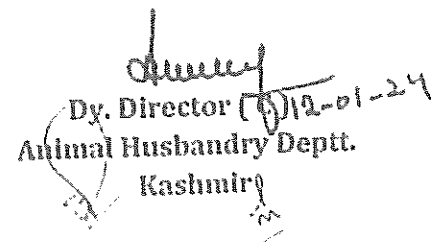 Dy. Director (P) 12-01-24
Animal Husbandry Deptt.
Kashmir